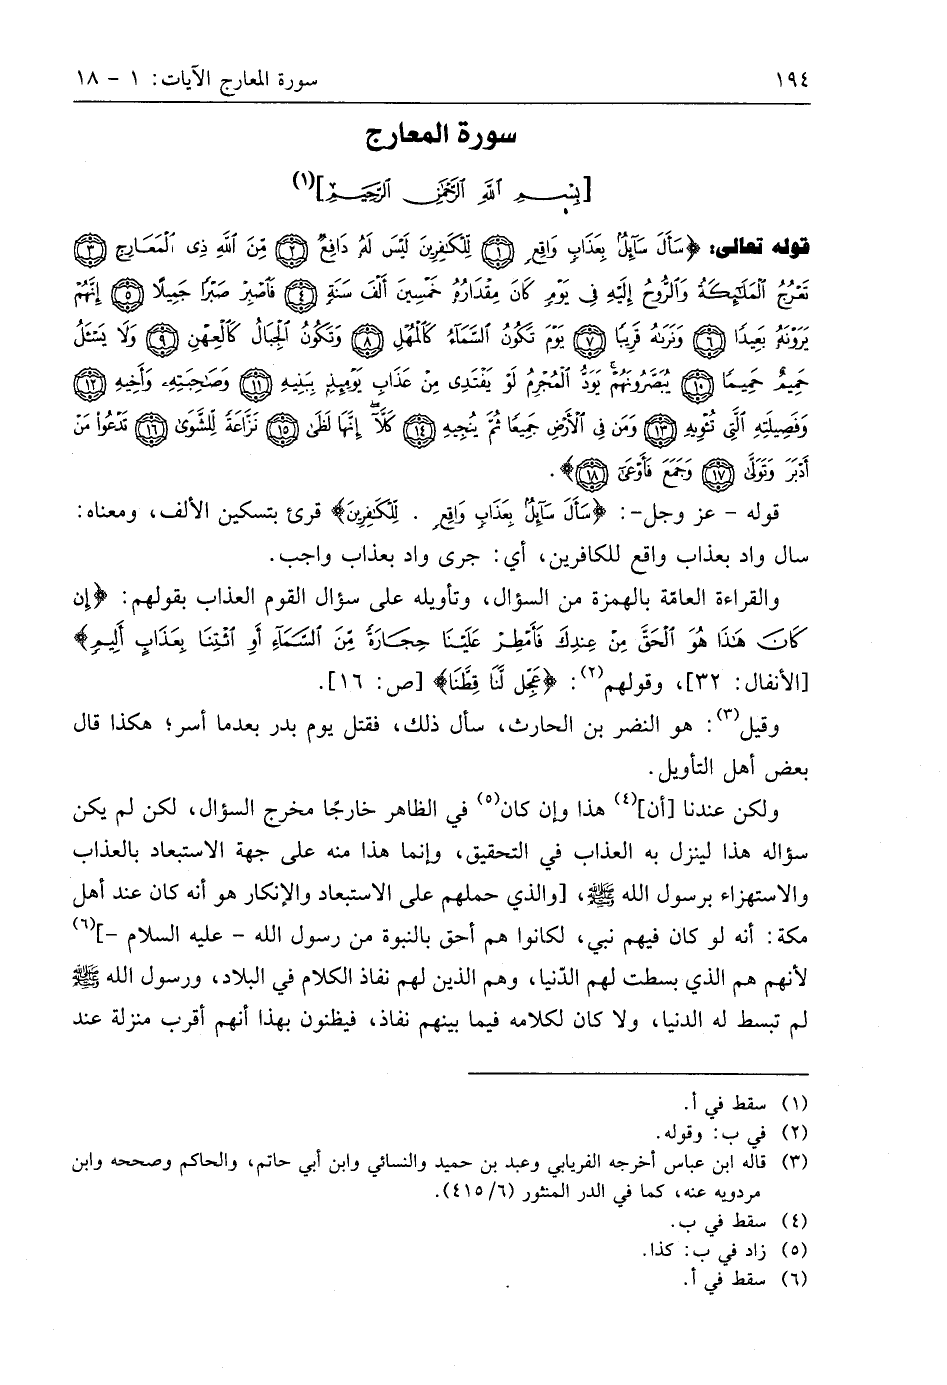 ١٩٤ سورة المعارج الآيات: ١ - ١٨
سورة المعارج
[بِسْمِ اللَّهِ الرَّحْمَٰنِ الرَّحِيمِ](١)
قوله تعالى: ﴿سَأَلَ سَآئِلٌۢ بِعَذَابٍ وَاقِعٍ ﴿١﴾ لِّلْكَٰفِرِينَ لَيْسَ لَهُۥ دَافِعٌ ﴿٢﴾ مِّنَ ٱللَّهِ ذِى ٱلْمَعَارِجِ ﴿٣﴾
تَعْرُجُ ٱلْمَلَٰٓئِكَةُ وَٱلرُّوحُ إِلَيْهِ فِى يَوْمٍ كَانَ مِقْدَارُهُۥ خَمْسِينَ أَلْفَ سَنَةٍ ﴿٤﴾ فَٱصْبِرْ صَبْرًا جَمِيلًا ﴿٥﴾ إِنَّهُمْ
يَرَوْنَهُۥ بَعِيدًا ﴿٦﴾ وَنَرَىٰهُ قَرِيبًا ﴿٧﴾ يَوْمَ تَكُونُ ٱلسَّمَآءُ كَٱلْمُهْلِ ﴿٨﴾ وَتَكُونُ ٱلْجِبَالُ كَٱلْعِهْنِ ﴿٩﴾ وَلَا يَسْـَٔلُ
حَمِيمٌ حَمِيمًا ﴿١٠﴾ يُبَصَّرُونَهُمْ ۚ يَوَدُّ ٱلْمُجْرِمُ لَوْ يَفْتَدِى مِنْ عَذَابِ يَوْمِئِذٍۭ بِبَنِيهِ ﴿١١﴾ وَصَٰحِبَتِهِۦ وَأَخِيهِ ﴿١٢﴾
وَفَصِيلَتِهِ ٱلَّتِى تُـْٔوِيهِ ﴿١٣﴾ وَمَن فِى ٱلْأَرْضِ جَمِيعًا ثُمَّ يُنجِيهِ ﴿١٤﴾ كَلَّآ ۖ إِنَّهَا لَظَىٰ ﴿١٥﴾ نَزَّاعَةً لِّلشَّوَىٰ ﴿١٦﴾ تَدْعُوا۟ مَنْ
أَدْبَرَ وَتَوَلَّىٰ ﴿١٧﴾ وَجَمَعَ فَأَوْعَىٰٓ ﴿١٨﴾﴾.
قوله - عز وجل-: ﴿سَأَلَ سَآئِلٌۢ بِعَذَابٍ وَاقِعٍ . لِّلْكَٰفِرِينَ﴾ قرئ بتسكين الألف، ومعناه:
سال واد بعذاب واقع للكافرين، أي: جرى واد بعذاب واجب.
والقراءة العامّة بالهمزة من السؤال، وتأويله على سؤال القوم العذاب بقولهم: ﴿إِن
كَانَ هَٰذَا هُوَ ٱلْحَقَّ مِنْ عِندِكَ فَأَمْطِرْ عَلَيْنَا حِجَارَةً مِّنَ ٱلسَّمَآءِ أَوِ ٱئْتِنَا بِعَذَابٍ أَلِيمٍ﴾
[الأنفال: ٣٢]، وقولهم(٢): ﴿عَجِّل لَّنَا قِطَّنَا﴾ [ص: ١٦].
وقيل(٣): هو النضر بن الحارث، سأل ذلك، فقتل يوم بدر بعدما أسر؛ هكذا قال
بعض أهل التأويل.
ولكن عندنا [أن](٤) هذا وإن كان(٥) في الظاهر خارجًا مخرج السؤال، لكن لم يكن
سؤاله هذا لينزل به العذاب في التحقيق، وإنما هذا منه على جهة الاستبعاد بالعذاب
والاستهزاء برسول الله ﷺ، [والذي حملهم على الاستبعاد والإنكار هو أنه كان عند أهل
مكة: أنه لو كان فيهم نبي، لكانوا هم أحق بالنبوة من رسول الله - عليه السلام -](٦)
لأنهم هم الذي بسطت لهم الدّنيا، وهم الذين لهم نفاذ الكلام في البلاد، ورسول الله ﷺ
لم تبسط له الدنيا، ولا كان لكلامه فيما بينهم نفاذ، فيظنون بهذا أنهم أقرب منزلة عند
(١) سقط في أ.
(٢) في ب: وقوله.
(٣) قاله ابن عباس أخرجه الفريابي وعبد بن حميد والنسائي وابن أبي حاتم، والحاكم وصححه وابن
مردويه عنه، كما في الدر المنثور (٤١٥/٦).
(٤) سقط في ب.
(٥) زاد في ب: كذا.
(٦) سقط في أ.